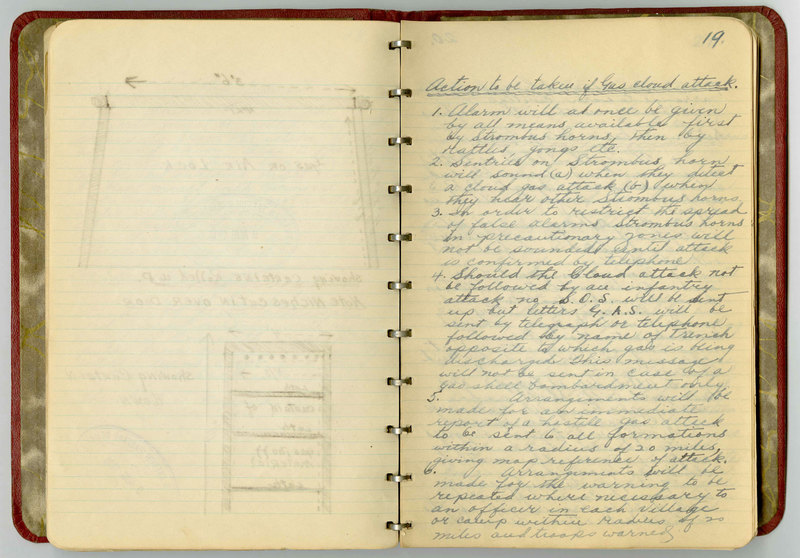 19.
Action to be taken if Gas cloud attack.
1. Alarm will at once be given
by all means available first
by Strombus horns, then by
rattles, gongs etc.
2. Sentries on Strombus horn
will sound (a) when they detect
a cloud gas attack (b) when
they hear other Strombus horns
3. In order to restrict the spread
of false alarms Strombus horns
in precautionary zones will
not be sounded until attack
is confirmed by telephone
4. Should the Cloud attack not
be followed by an infantry
attack no S.O.S. will be sent
up but letters G.A.S. will be
sent by telegraph or telephone
followed by name of trench
opposite to which gas is being
discharged this message
will not be sent in case of a
gas shell bombardment only
5. Arrangements will be
made for an immediate
report of a hostile gas attack
to be sent to all formations
within a radius of 20 miles,
giving map reference of attack.
6. Arrangements will be
made for the warning to be
repeated where necessary to
an officer in each village
or camp within radius of 20
miles and troops warned